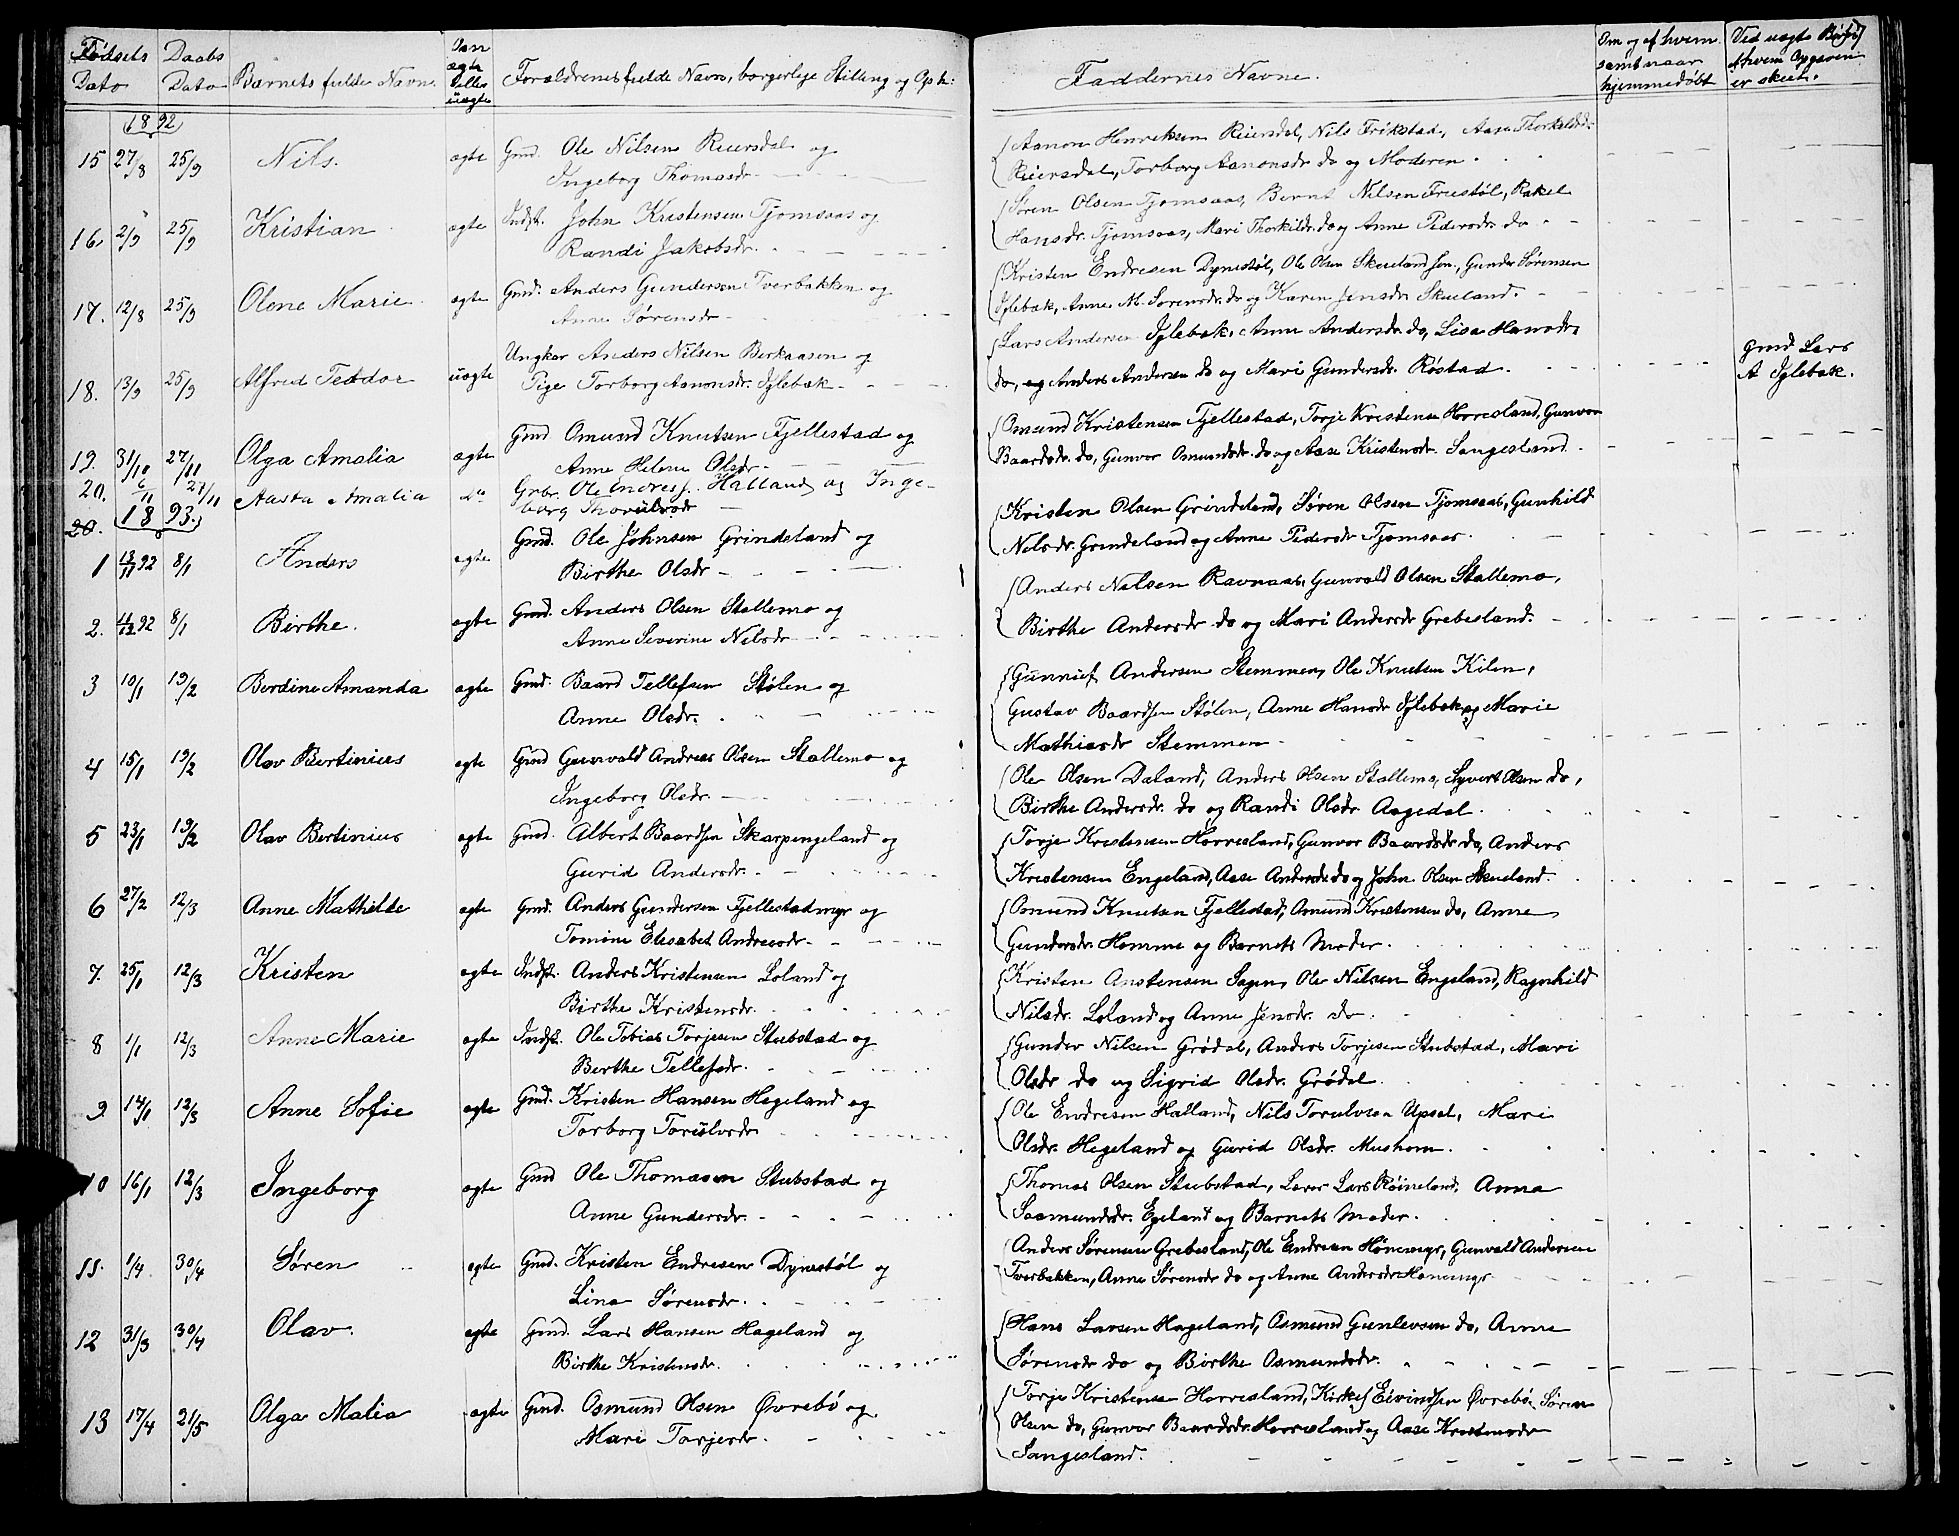 Fødsels Dato
Daabs Dato
Barnets fulde Navn.
Om ægte eller uægte
Forældrenes fulde Navn, borgerlige Stilling og Oph:
Faddernes Navne.
Om og af hvem samt naar hjemmedøbt
Ved uægte Børn, af hvem Opgaven er skeet.
1892
15 27/8 25/9 Nils. ægte Gmd. Ole Nilsen Reiersdal og
Ingeborg Thomasdr.
Aanon Henriksen Reiersdal, Nils Frikstad, Aase Thorkildsdr.
Reiersdal, Torborg Aanonsdr. do og Moderen.
16. 2/9 25/9 Kristian ægte Indst. John Kristensen Tjomsaas og
Randi Jakobsdr.
Søren Olsen Tjomsaas, Bernt Nilsen Frustøl, Rakel
Hansdr. Tjomsaas, Mari Thorkildr. do og Anne Pedersdr. do
17. 12/8 25/9 Olene Marie. ægte Gmd. Anders Gundersen Tverbakken og
Anne Sørensdr.
Kristen Endresen Dynestøl, Ole Olsen Skueland sen., Gunder Sørensen
Iglebæk, Anne M. Sørensdr. do og Karen Jensdr. Skueland.
18. 13/9 25/9 Alfred Teodor uægte Ungkar Anders Nilsen Berkaasen og
Pige Torborg Aanonsdr. Iglebæk
Lars Andersen Iglebæk, Anne Andersdr. do, Lisa Hansdr.
do, og Anders Andersen do og Mari Gundersdr. Røstad.
Gmd Lars
A Iglebæk.
19. 31/10 27/11 Olga Amalia ægte Gmd Omund Knutsen Fjellestad og
Anne Helene Olsdr.
Omund Kristensen Fjellestad, Torje Kristensen Horresland, Gunvor
Baardsdr. do, Gunvor Osmundsdr. do og Aase Kristensdr. Sangesland.
20. 6/11 27/11 Aasta Amalia do Grbr. Ole Endres. Halland og Inge-
borg Thorulvsdr
20.
1893.
1 13/11 92 8/1 Anders ægte Gmd. Ole Johnsen Grindeland og
Birthe Olsdr
Kristen Olsen Grindeland, Søren Olsen Tjomsaas, Gunhild
Nilsdr. Grindeland og Anne Pedersdr Tjomsaas.
2. 4/12 92 8/1 Birthe. ægte Gmd. Anders Olsen Stallemo og
Anne Severine Nilsdr
Anders Nilsen Ravnaas, Gunvald Olsen Stallemo,
Birthe Andersdr do og Mari Andersdr Grebesland.
3 10/1 19/2 Berdine Amanda ægte Gmd. Baard Tellefsen Stølen og
Anne Olsdr.
Gunnief Andersen Stemmen, Ole Knutsen Kilen,
Gustav Baardsen Stølen, Anne Hansdr Iglebæk og Marie
Mathiasdr Stemmen
4 15/1 19/2 Olav Bertinius ægte Gmd Gunvald Andreas Olsen Stallemo og
Ingeborg Olsdr.
Ole Olsen Daland, Anders Olsen Stallemo, Syvert Olsen do,
Birthe Andersdr. do og Randi Olsdr. Aagedal.
5 23/1 19/2 Olav Bertinius ægte Gmd. Albert Baardsen Skarpengeland og
Gurid Andersdr.
Torje Kristensen Horresland, Gunvor Baardsdr. do, Anders
Kristensen Engeland, Aase Andersdr. do og John Olsen Skueland.
6 27/2 12/3 Anne Mathilde ægte Gmd. Anders Gundersen Fjellestadmyr og
Tomine Elisabet Andreasdr.
Osmund Knutsen Fjellestad, Omund Kristensen do, Anne
Gundersdr. Homme og Barnets Moder.
7. 25/1 12/3 Kristen ægte Indst. Anders Kristensen Loland og
Birthe Kristensdr.
Kristen Anstensen Sagen, Ole Nilsen Engeland, Ragnhild
Nilsdr. Loland og Anne Jensdr. do.
8 1/1 12/3 Anne Marie ægte Indst. Ole Tobias Torjesen Stubstad og
Berthe Tellefsdr.
Gunder Nilsen Grødal, Anders Torjesen Stubstad, Mari
Olsdr do og Sigrid Olsdr. Grødal.
9 14/1 12/3 Anne Sofie ægte Gmd. Kristen Hansen Hageland og
Torborg Torulvsdr
Ole Endresen Halland, Nils Torulvsen Upsal, Mari
Olsdr. Hageland og Gurid Olsdr. Mushom.
10 16/1 12/3 Ingeborg ægte Gmd Ole Thomasen Stubstad og
Anne Gundersdr.
Thomas Olsen Stubstad, Lærer Lars Røineland, Anna
Saamundsdr. Egeland og Barnets Moder.
11. 1/4 30/4 Søren ægte Gmd. Kristen Endresen Dynestøl og
Lina Sørensdr.
Anders Sørensen Grebesland, Ole Endresen Hønemyr, Gunvald Andersen
Tverbakken, Anne Sørensdr do og Anne Andersdr Hønemyr
12 31/3 30/4 Olav. ægte Gmd. Lars Hansen Hageland og
Birthe Kristensdr.
Hans Larsen Hageland, Osmund Gunlevsen do, Anne
Sørensdr do og Birthe Osmundsdr.
13 17/4 21/5 Olga Malia ægte Gmd. Osmund Olsen Øvrebø og
Mari Torjesdr.
Torje Kristensen Horresland, Kirkes. Eivindsen Øvrebø, Søren
Olsen do, Gunvor Baardsdr. Horresland og Aase Kristensdr
Sangesland.